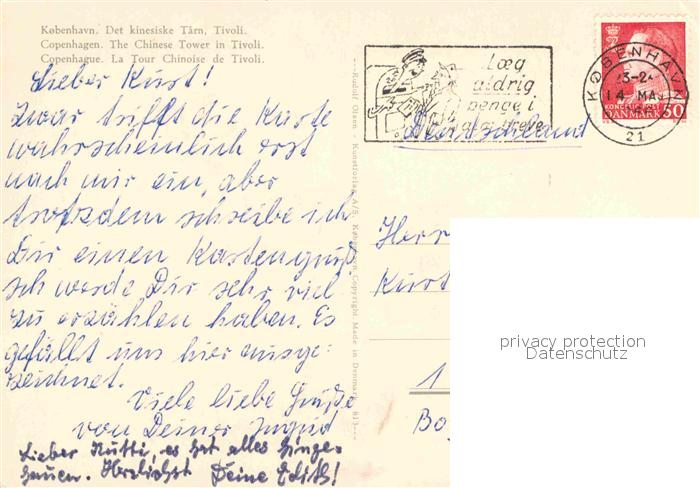 København. Det kinesiske Tårn, Tivoli.
Copenhagen. The Chinese Tower in Tivoli.
Copenhague. La Tour Chinoise de Tivoli.
Lieber Kurt!
Zwar trifft die Karte
wahrscheinlich erst
nach mir ein, aber
trotzdem schreibe ich
Dir einen Kartengruß.
Ich werde Dir sehr viel
zu erzählen haben. Es
gefällt uns hier ausge-
zeichnet.
Viele liebe Grüße
von Deiner Ingrid
Lieber Kutti, es hat alles hinge-
hauen. Herzlichst Deine Edith!
Rudolf Olsen - Kunstforlag A/S. København. Copyright. Made in Denmark. 813
Læg
aldrig
penge i
breve
KØBENHAVN
14 MAJ
21
DANMARK 50
Deutschland
Herr
Kurt
1
privacy protection
Datenschutz